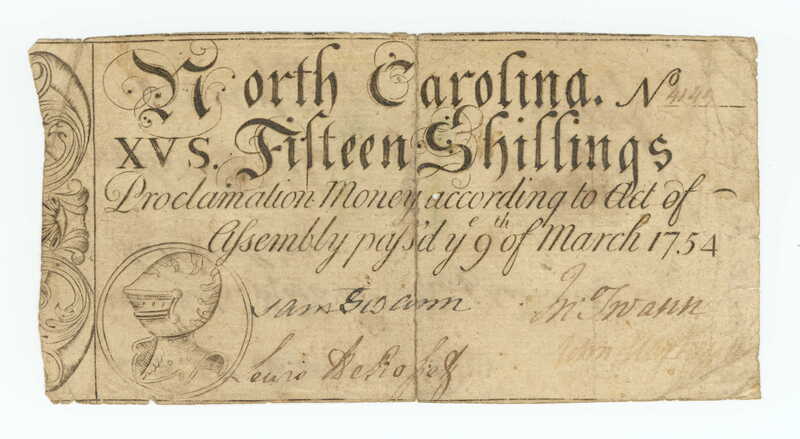 North Carolina. No 4144
XVS. Fifteen Shillings
Proclamation Money according to Act of
Assembly pass'd ye 9th of March 1754
Sam Swann Jno Swann
Lewis DeRosset John